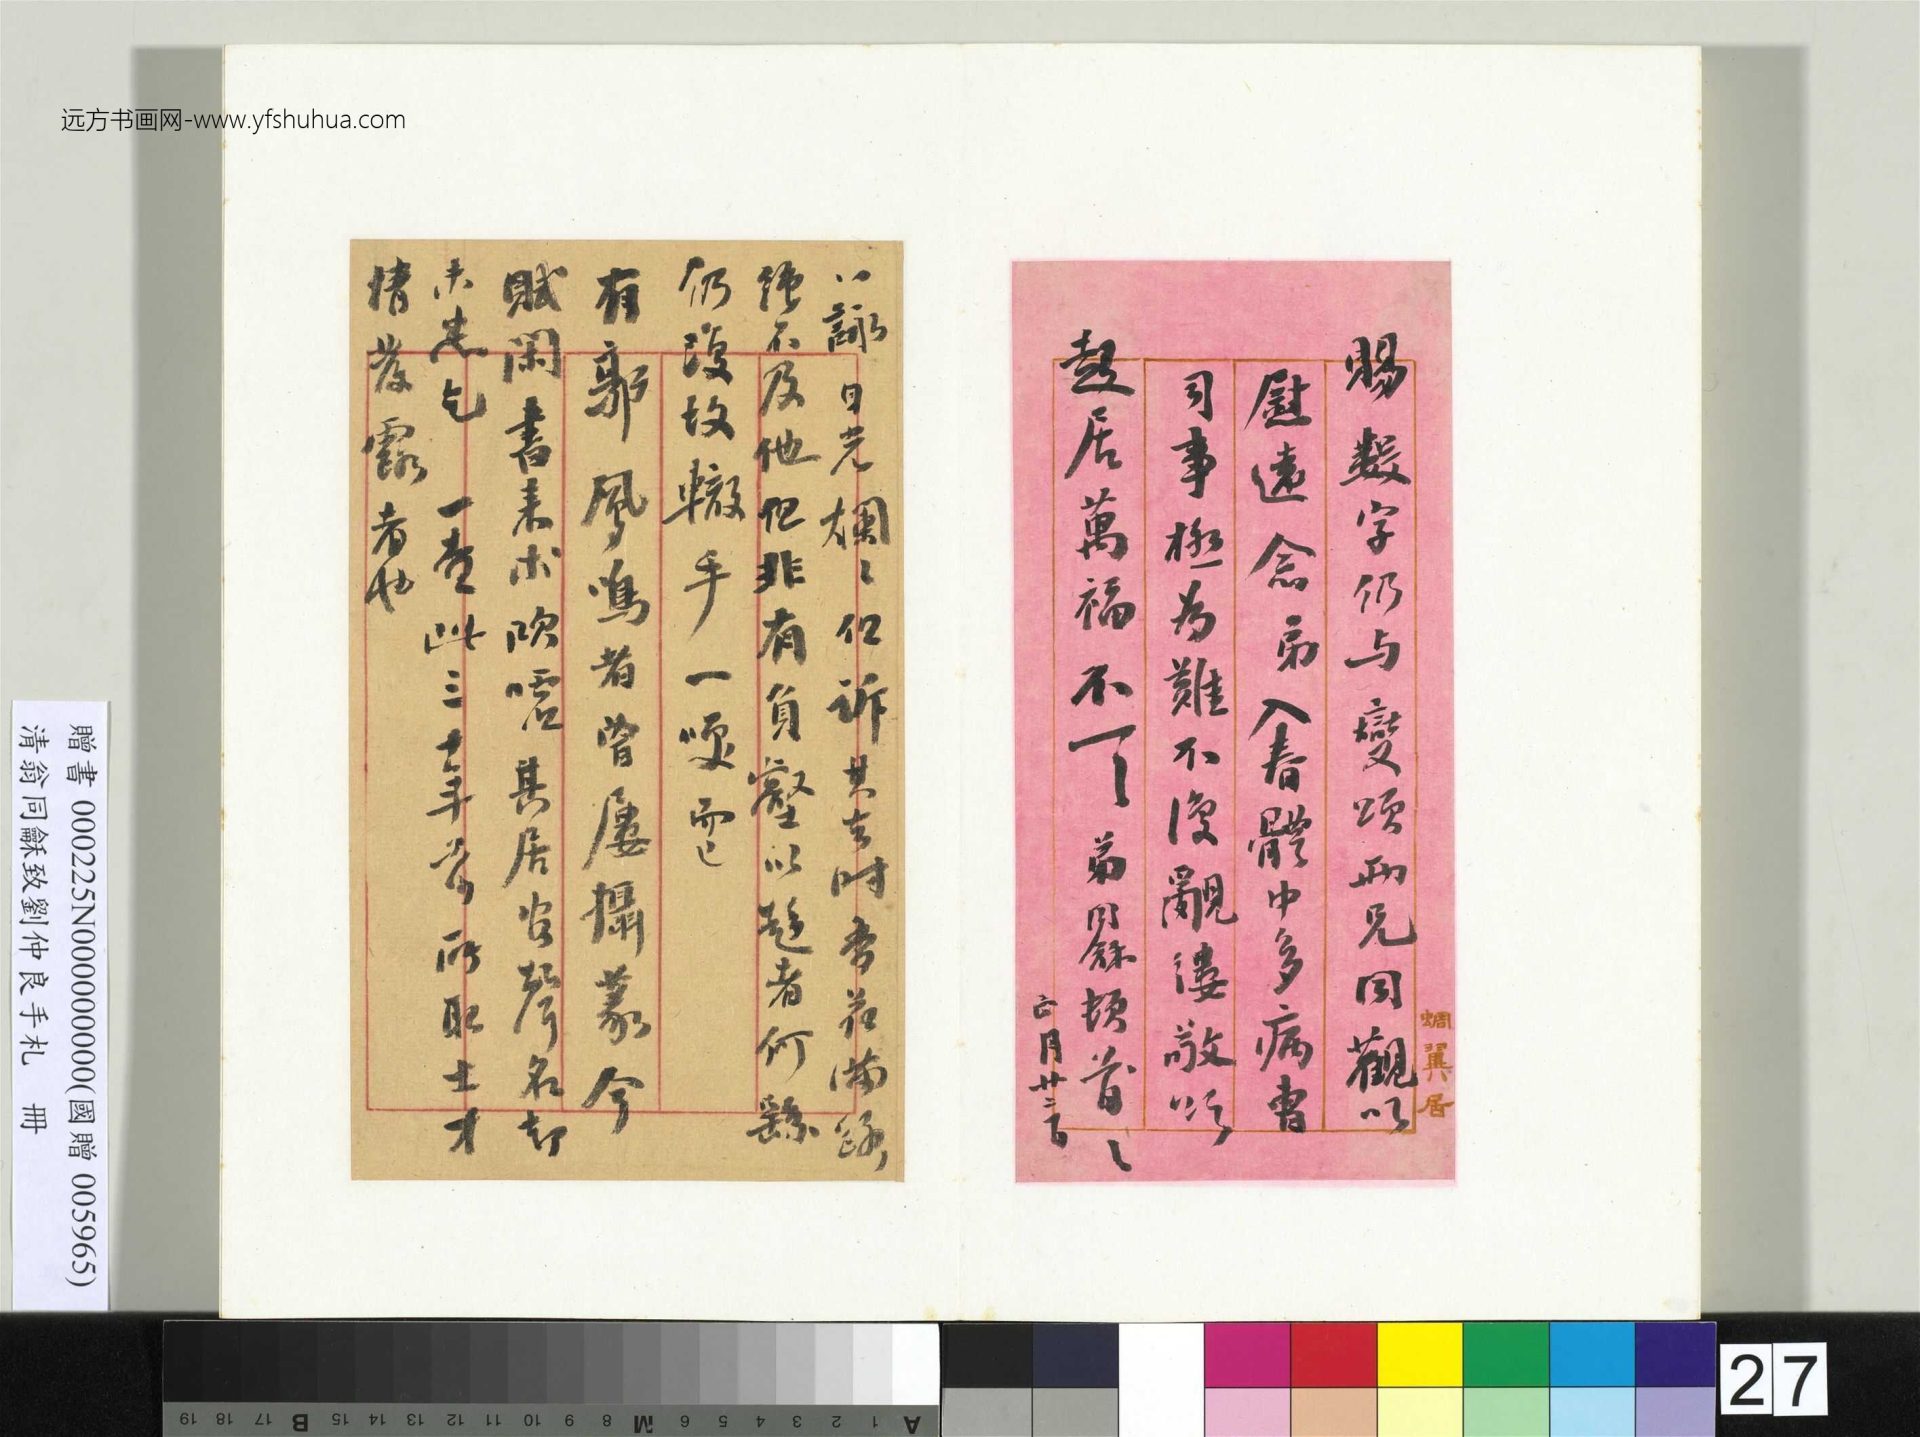 远方书画网-www.yfshuhua.com
賜數字仍与燮頌兩兄同觀以
慰遠念弟入春體中多病書
司事極為難不復覼縷敬頌
起居萬福不一一 弟同龢頓首〻
正月廿二日
蜩翼居
八詠 日光爛〻但訴其
強不及他但非有負壑以趨者何
仍復故轍手一喟而已
有郭鳳鳴者曾屢攝篆今
賦閑書來求吹噓其居官聲名
一查此三十年前所取士
情發露者也
贈書 000225N000000000(國贈 005965)
清翁同龢致劉仲良手札 冊
A 1 2 3 4 5 6 M 8 9 10 11 12 13 14 15 B 17 18 19
27